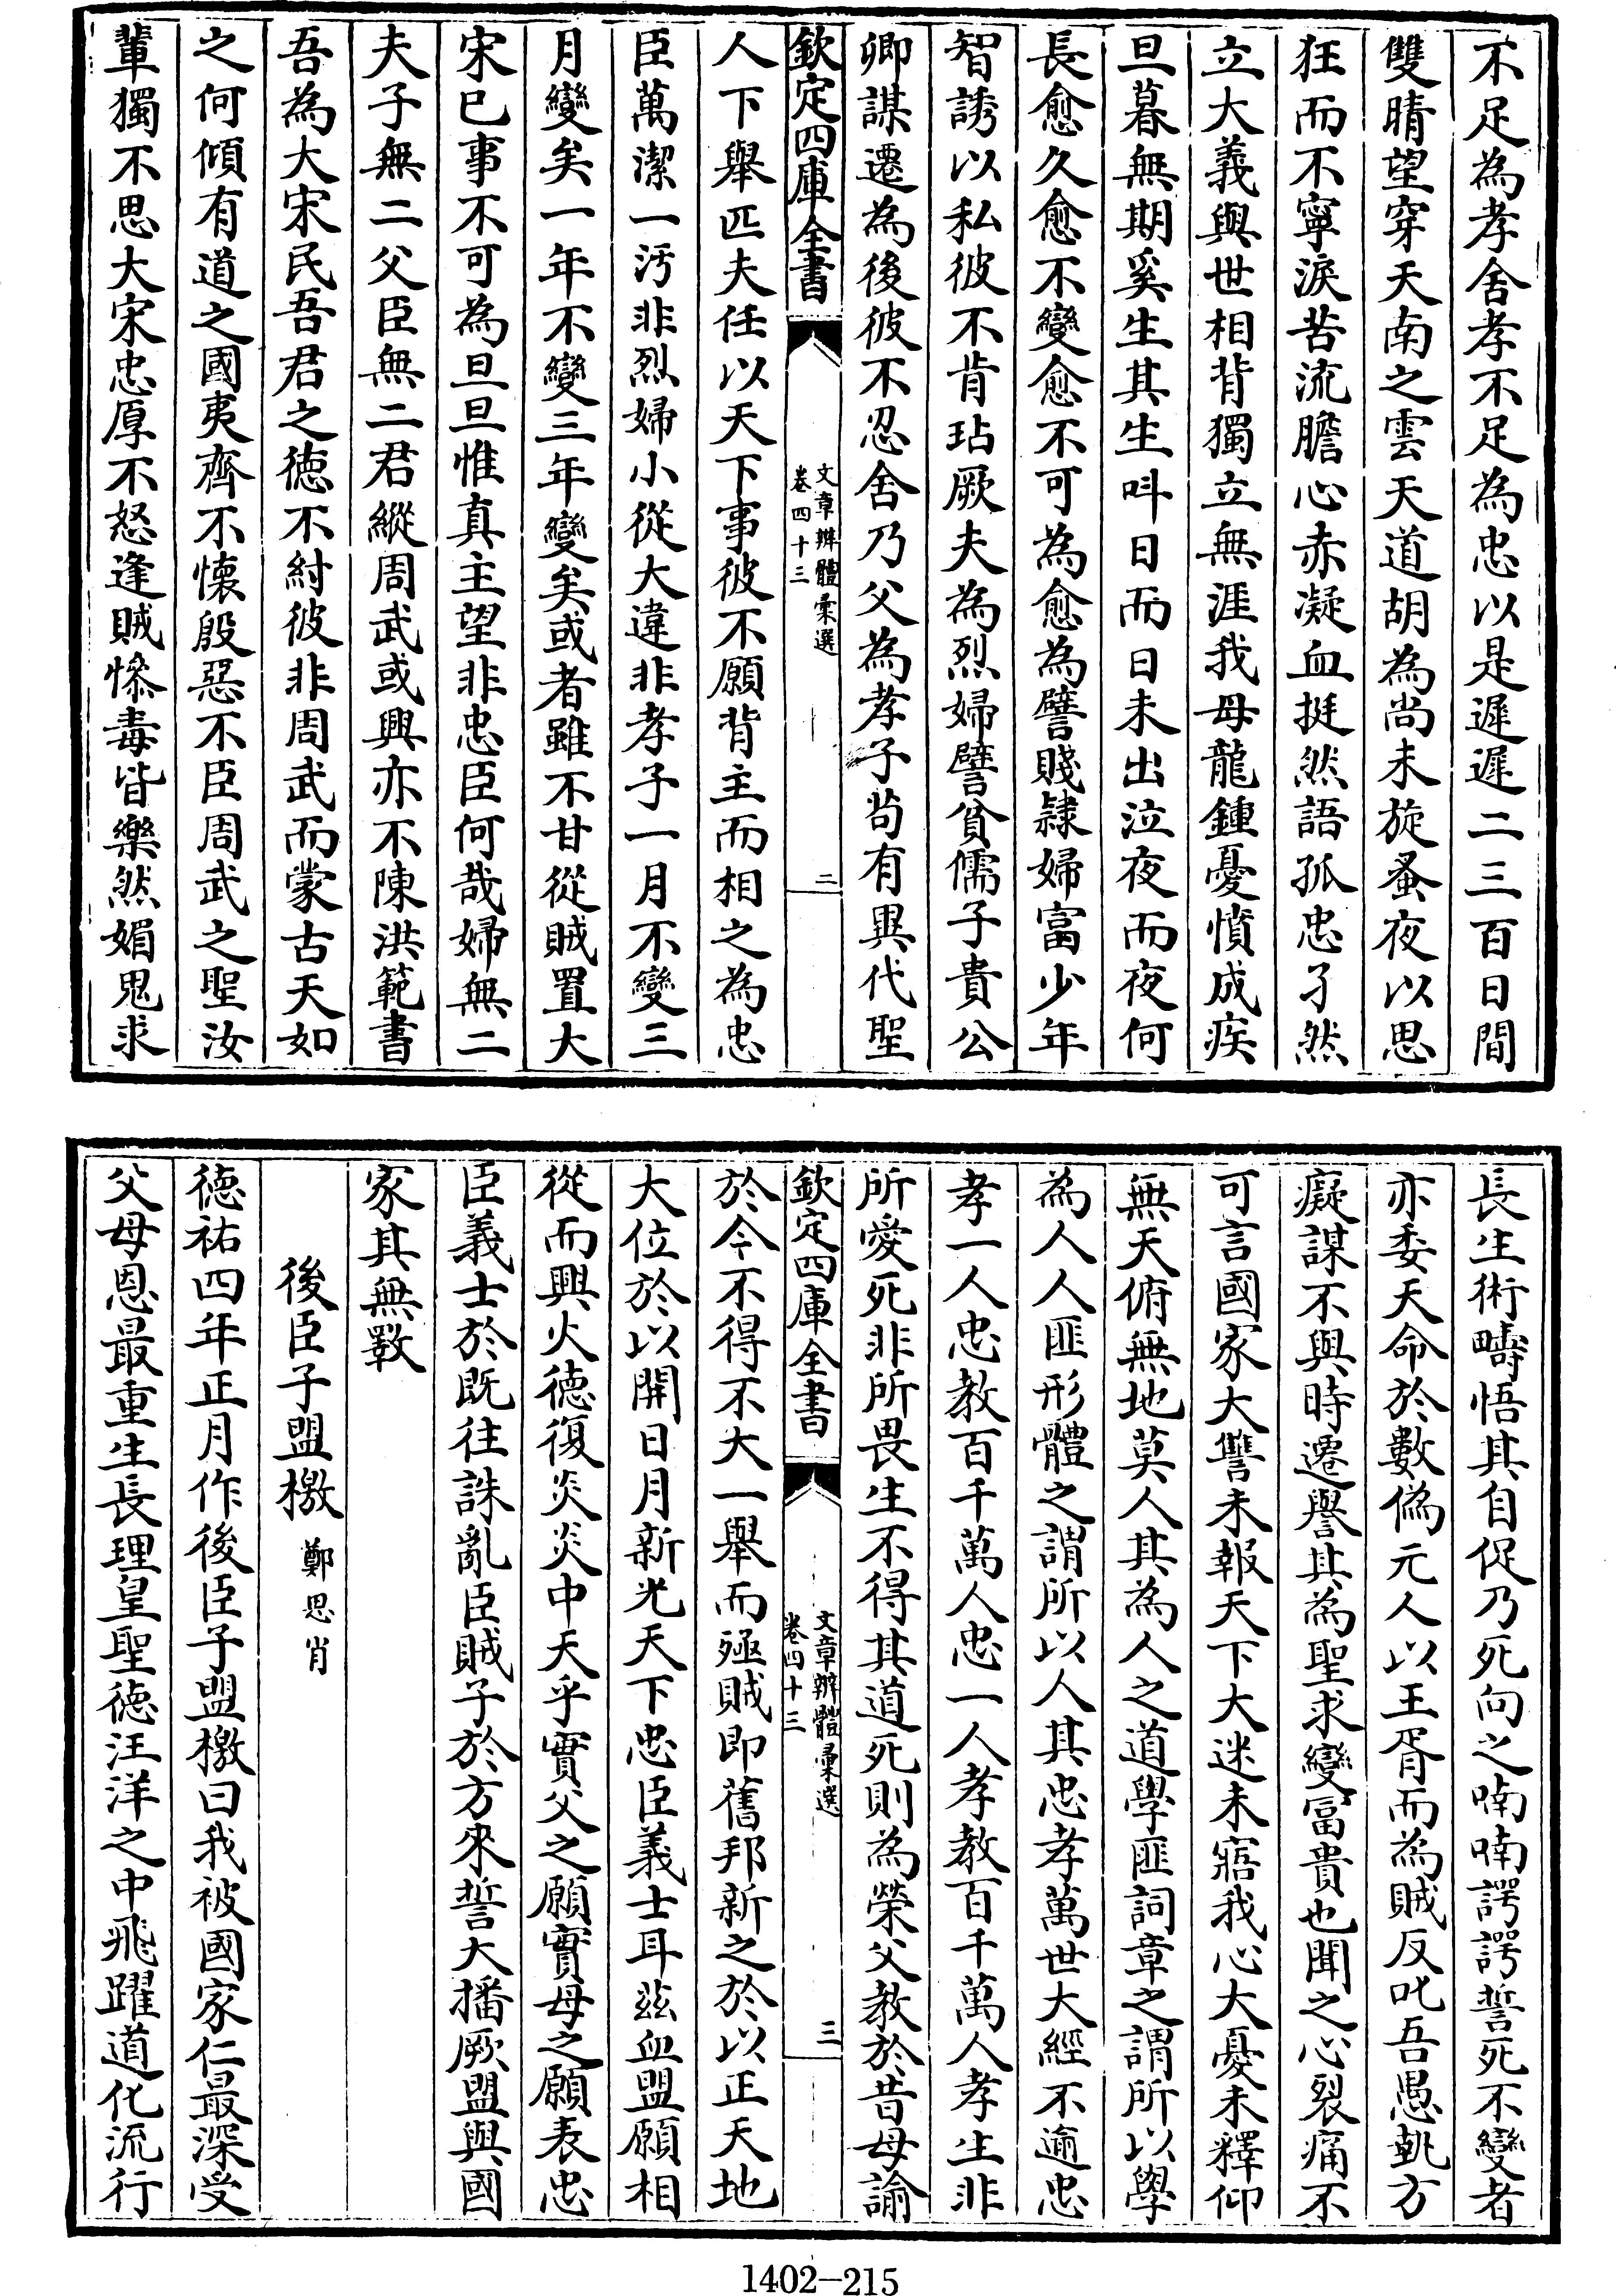 不足為孝舍孝不足為忠以是遲遲二三百日間
雙睛望穿天南之雲天道胡為尚未旋蚤夜以思
狂而不寧淚苦流膽心赤凝血挺然語孤忠孑然
立大義與世相背獨立無涯我母龍鍾憂憤成疾
旦暮無期奚生其生呌日而日未出泣夜而夜何
長愈久愈不變愈不可為愈為譬賤隸婦富少年
智誘以私彼不肯玷厥夫為烈婦譬貧儒子貴公
卿謀遷為後彼不忍舍乃父為孝子茍有異代聖
欽定四庫全書
文章辨體彚選
卷四十三
二
人下舉匹夫任以天下事彼不願背主而相之為忠
臣萬潔一汚非烈婦小從大違非孝子一月不變三
月變矣一年不變三年變矣或者雖不甘從賊置大
宋已事不可為旦旦惟真主望非忠臣何哉婦無二
夫子無二父臣無二君縱周武或興亦不陳洪範書
吾為大宋民吾君之徳不紂彼非周武而蒙古天如
之何傾有道之國夷齊不懷殷惡不臣周武之聖汝
輩獨不思大宋忠厚不怒逢賊慘毒皆樂然媚鬼求
長生術疇悟其自促乃死向之喃喃諤諤誓死不變者
亦委天命於數偽元人以王胥而為賊反叱吾愚執方
癡謀不與時遷譽其為聖求變冨貴也聞之心裂痛不
可言國家大讐未報天下大迷未寤我心大憂未釋仰
無天俯無地莫人其為人之道學匪詞章之謂所以學
為人人匪形體之謂所以人其忠孝萬世大經不逾忠
孝一人忠教百千萬人忠一人孝教百千萬人孝生非
所愛死非所畏生不得其道死則為榮父教於昔母諭
欽定四庫全書
文章辨體彚選
卷四十三
三
於今不得不大一舉而殛賊即舊邦新之於以正天地
大位於以開日月新光天下忠臣義士耳茲血盟願相
從而興火徳復炎炎中天乎實父之願實母之願表忠
臣義士於既往誅亂臣賊子於方來誓大播厥盟與國
家其無斁
後臣子盟檄 鄭思肖
徳祐四年正月作後臣子盟檄曰我被國家仁最深受
父母恩最重生長理皇聖徳汪洋之中飛躍道化流行
1402-215